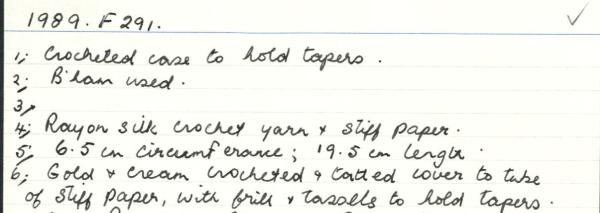 1989. F 291.
1; Crocheted case to hold tapers.
2; B'ham used.
3;
4; Rayon silk crochet yarn & stiff paper.
5; 6.5 cm circumferance; 19.5 cm length.
6; Gold & cream crocheted & tatted cover to tube
of stiff paper, with frill & tassells to hold tapers.